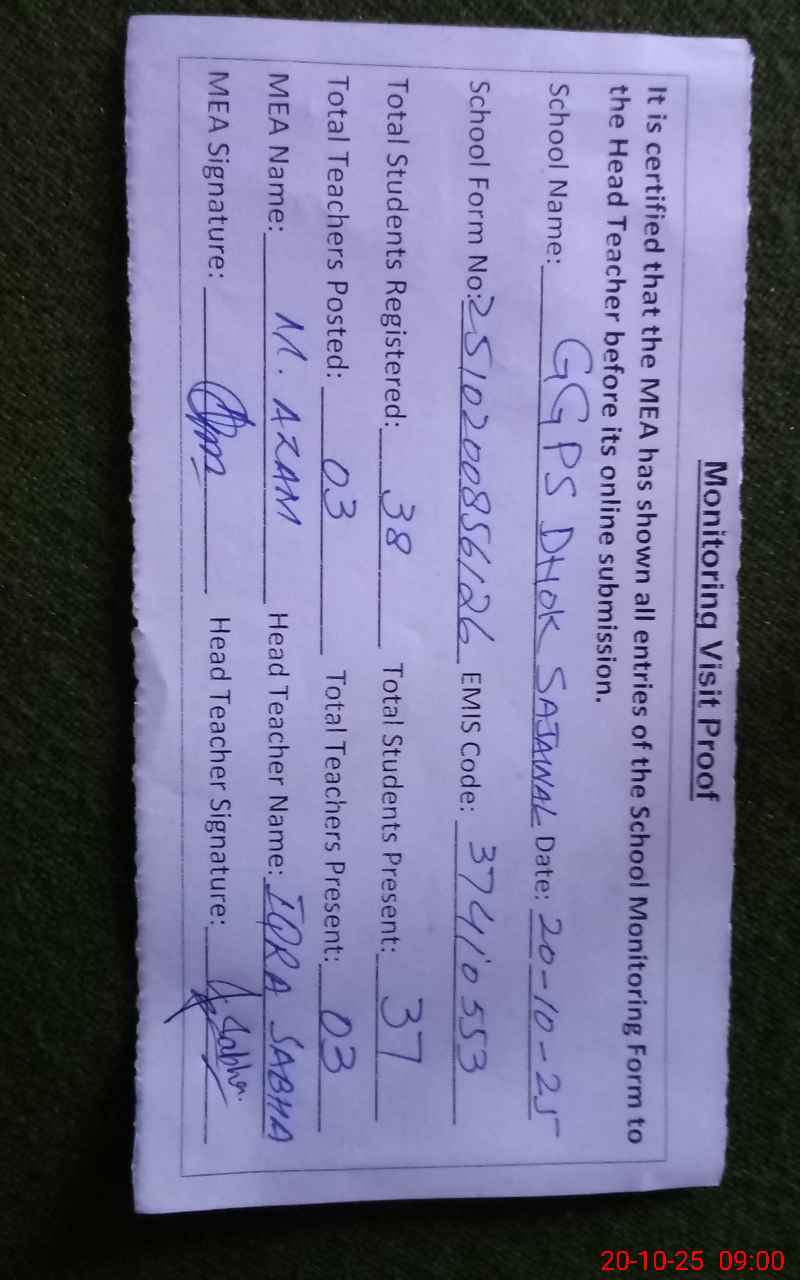 Monitoring Visit Proof
It is certified that the MEA has shown all entries of the School Monitoring Form to
the Head Teacher before its online submission.
School Name: GGPS DHOK SAJAWAL Date: 20-10-25
School Form No: 2510200856126 EMIS Code: 37410553
Total Students Registered: 38 Total Students Present: 37
Total Teachers Posted: 03 Total Teachers Present: 03
MEA Name: M. AZAM Head Teacher Name: IQRA SABHA
MEA Signature: Head Teacher Signature:
20-10-25 09:00